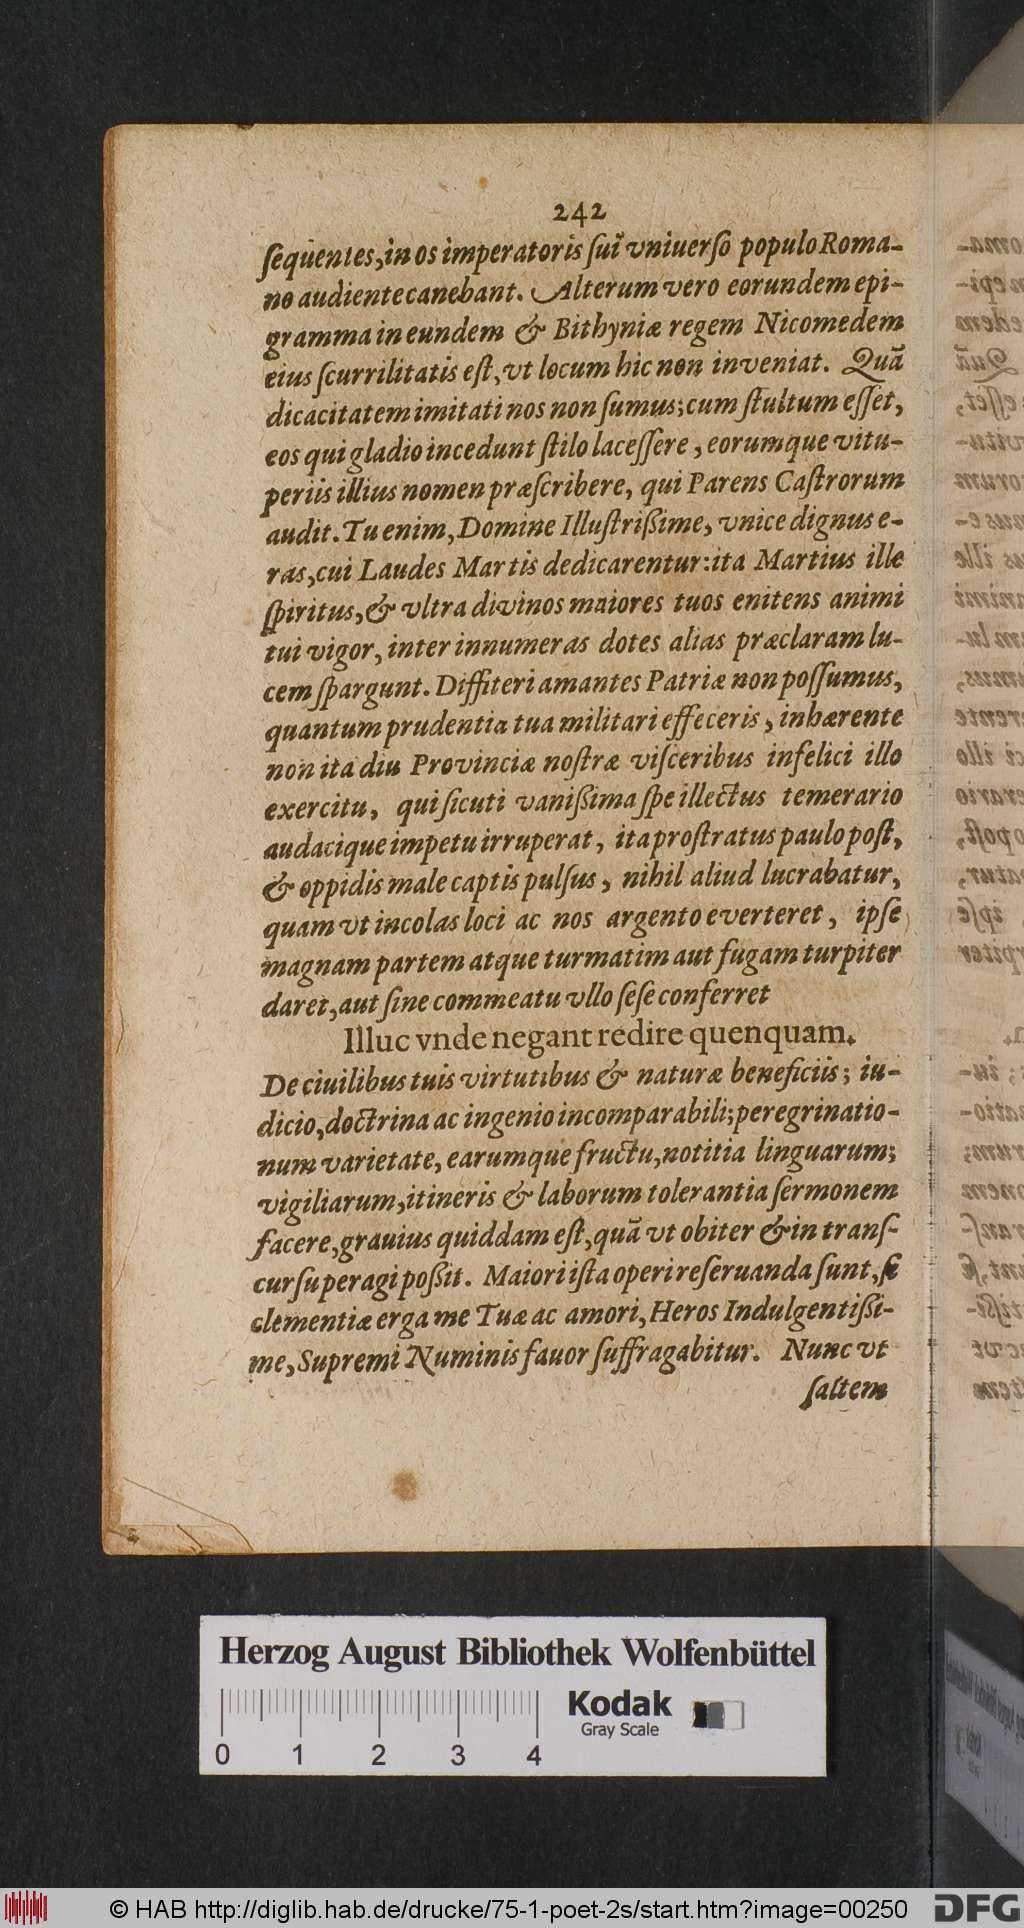 242
ſequentes, in os imperatoris ſui vniuerſo populo Roma-
no audiente canebant. Alterum vero eorundem epi-
gramma in eundem & Bithyniæ regem Nicomedem
eius ſcurrilitatis eſt, vt locum hic non inveniat. Quã
dicacitatem imitati nos non ſumus; cum ſtultum eſſet,
eos qui gladio incedunt ſtilo laceſſere, eorumque vitu-
periis illius nomen præſcribere, qui Parens Caſtrorum
audit. Tu enim, Domine Illuſtrißime, vnice dignus e-
ras, cui Laudes Martis dedicarentur: ita Martius ille
ſpiritus, & vltra divinos maiores tuos enitens animi
tui vigor, inter innumeras dotes alias præclaram lu-
cem ſpargunt. Diffiteri amantes Patriæ non poſſumus,
quantum prudentia tua militari effeceris, inhærente
non ita diu Provinciæ noſtræ viſceribus infelici illo
exercitu, qui ſicuti vanißima ſpe illectus temerario
audacique impetu irruperat, ita proſtratus paulo poſt,
& oppidis male captis pulſus, nihil aliud lucrabatur,
quam vt incolas loci ac nos argento everteret, ipſe
magnam partem atque turmatim aut fugam turpiter
daret, aut ſine commeatu vllo ſeſe conferret
Illuc vnde negant redire quenquam.
De ciuilibus tuis virtutibus & naturæ beneficiis; iu-
dicio, doctrina ac ingenio incomparabili; peregrinatio-
num varietate, earumque fructu, notitia linguarum;
vigiliarum, itineris & laborum tolerantia ſermonem
facere, grauius quiddam eſt, quã vt obiter & in tranſ-
curſu peragi poßit. Maiori iſta operi reſeruanda ſunt, ſi
clementiæ erga me Tuæ ac amori, Heros Indulgentißi-
me, Supremi Numinis fauor ſuffragabitur. Nunc vt
ſaltem
Herzog August Bibliothek Wolfenbüttel
Kodak
Gray Scale
0 1 2 3 4
© HAB http://diglib.hab.de/drucke/75-1-poet-2s/start.htm?image=00250
DFG